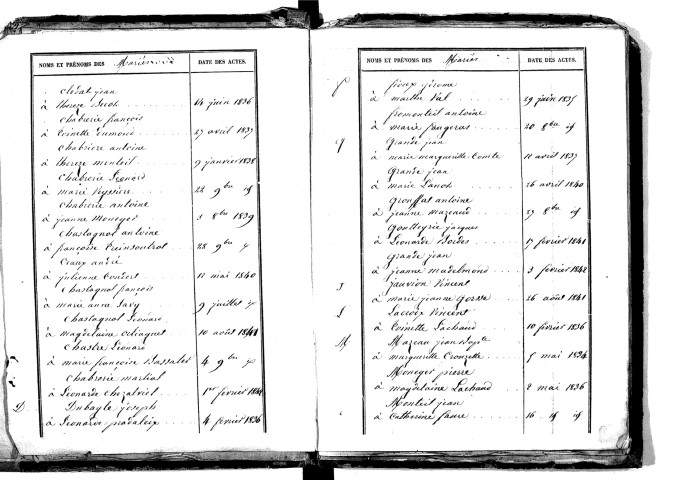 NOMS ET PRÉNOMS DES Mariés DATE DES ACTES.
Clédat jean
à thereze 14 juin 1836
Chabrerie françois
à Toinette Dumond 27 avril 1837
Chabriere antoine
à thereze monteil 9 janvier 1838
Chabrerie Léonard
à marie Veyssiere 22 9bre id
Chabrerie antoine
à jeanne Moneger 3 8bre 1839
Chastagnol antoine
à françoise Treinsoutrot 28 9bre
Ceaux andré
à julienne 11 mai 1840
Chastagnol françois
à marie anne Lavy 9 juillet
Chastagnol Léonard
à magdelaine 10 août 1841
Chastre Léonard
à marie françoise Bassalet 4 9bre
Chabrerie martial
à Léonarde 1er février 1841
D Dubayle joseph
à Léonarde pradaleix 4 février 1836
NOMS ET PRÉNOMS DES Mariés DATE DES ACTES.
jérome
à marthe Vial 29 juin 1835
fromonteil antoine
à marie faugeras 20 8bre id
G Grande jean
à marie marguerite Comte 11 avril 1837
Grande jean
à marie 26 avril 1840
Grouffat antoine
à jeanne mazeaud 27 8bre id
Goutteyrie jacques
à Léonarde Boides 17 février 1841
Grande jean
à jeanne madelmond 3 février 1842
J Jauvion Vincent
à marie jeanne Gorsse 26 août 1841
L Lacroix Vincent
à Toinette Lachaud 10 février 1836
M Mazeau jean
à marguerite Crouzette 5 mai 1834
Moneger pierre
à magdelaine Lachaud 2 mai 1836
Monteil jean
à Catherine faure 16 id id